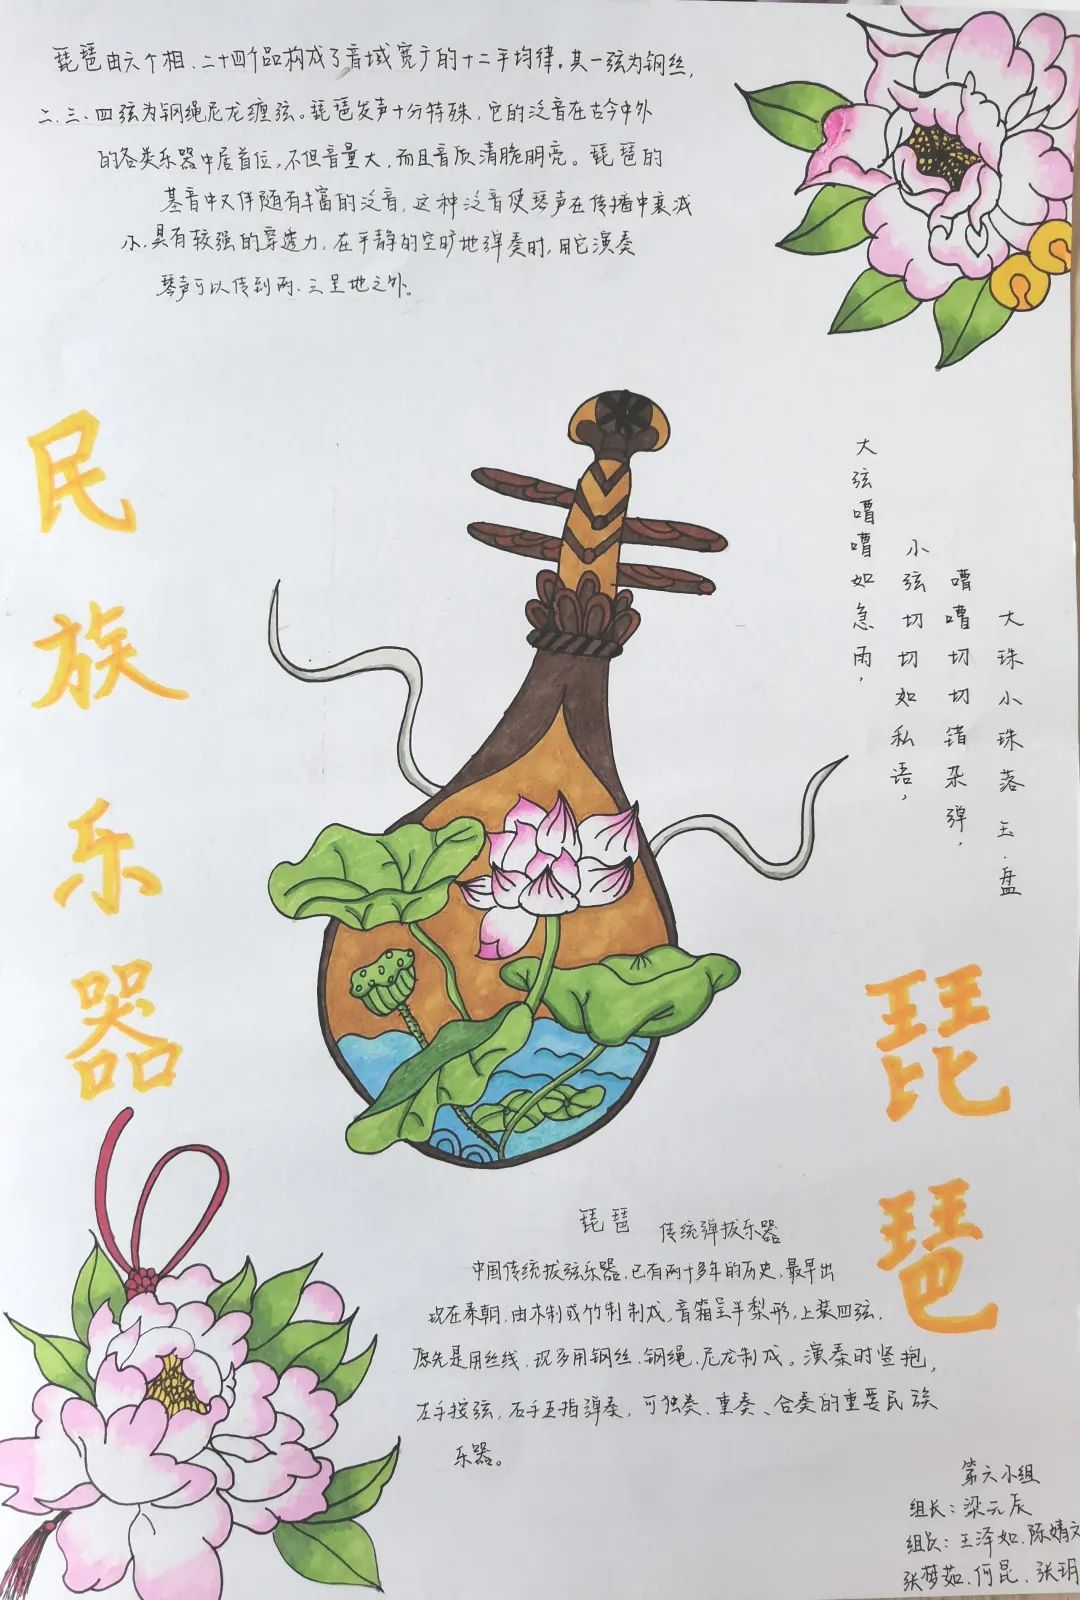 琵琶由六个相、二十四个品构成了音域宽广的十二平均律。其一弦为钢丝,
二、三、四弦为钢绳尼龙缠弦。琵琶发声十分特殊,它的泛音在古今中外
的各类乐器中居首位,不但音量大,而且音质清脆明亮。琵琶的
基音中又伴随有丰富的泛音,这种泛音使琴声在传播中衰减
小,具有较强的穿透力,在平静的空旷地弹奏时,用它演奏
琴声可以传到两、三里地之外。
民族乐器
大弦嘈嘈如急雨,
小弦切切如私语,
嘈嘈切切错杂弹,
大珠小珠落玉盘
琵琶
琵琶 传统弹拨乐器
中国传统拨弦乐器,已有两千多年的历史,最早出
现在秦朝,由木制或竹制制成,音箱呈半梨形,上装四弦,
原先是用丝线,现多用钢丝、钢绳、尼龙制成。演奏时竖抱,
左手按弦,右手五指弹奏,可独奏、重奏、合奏的重要民族
乐器。
第六小组
组长:梁元辰
组员:王泽如、陈婧文
张梦茹、何昆、张玥